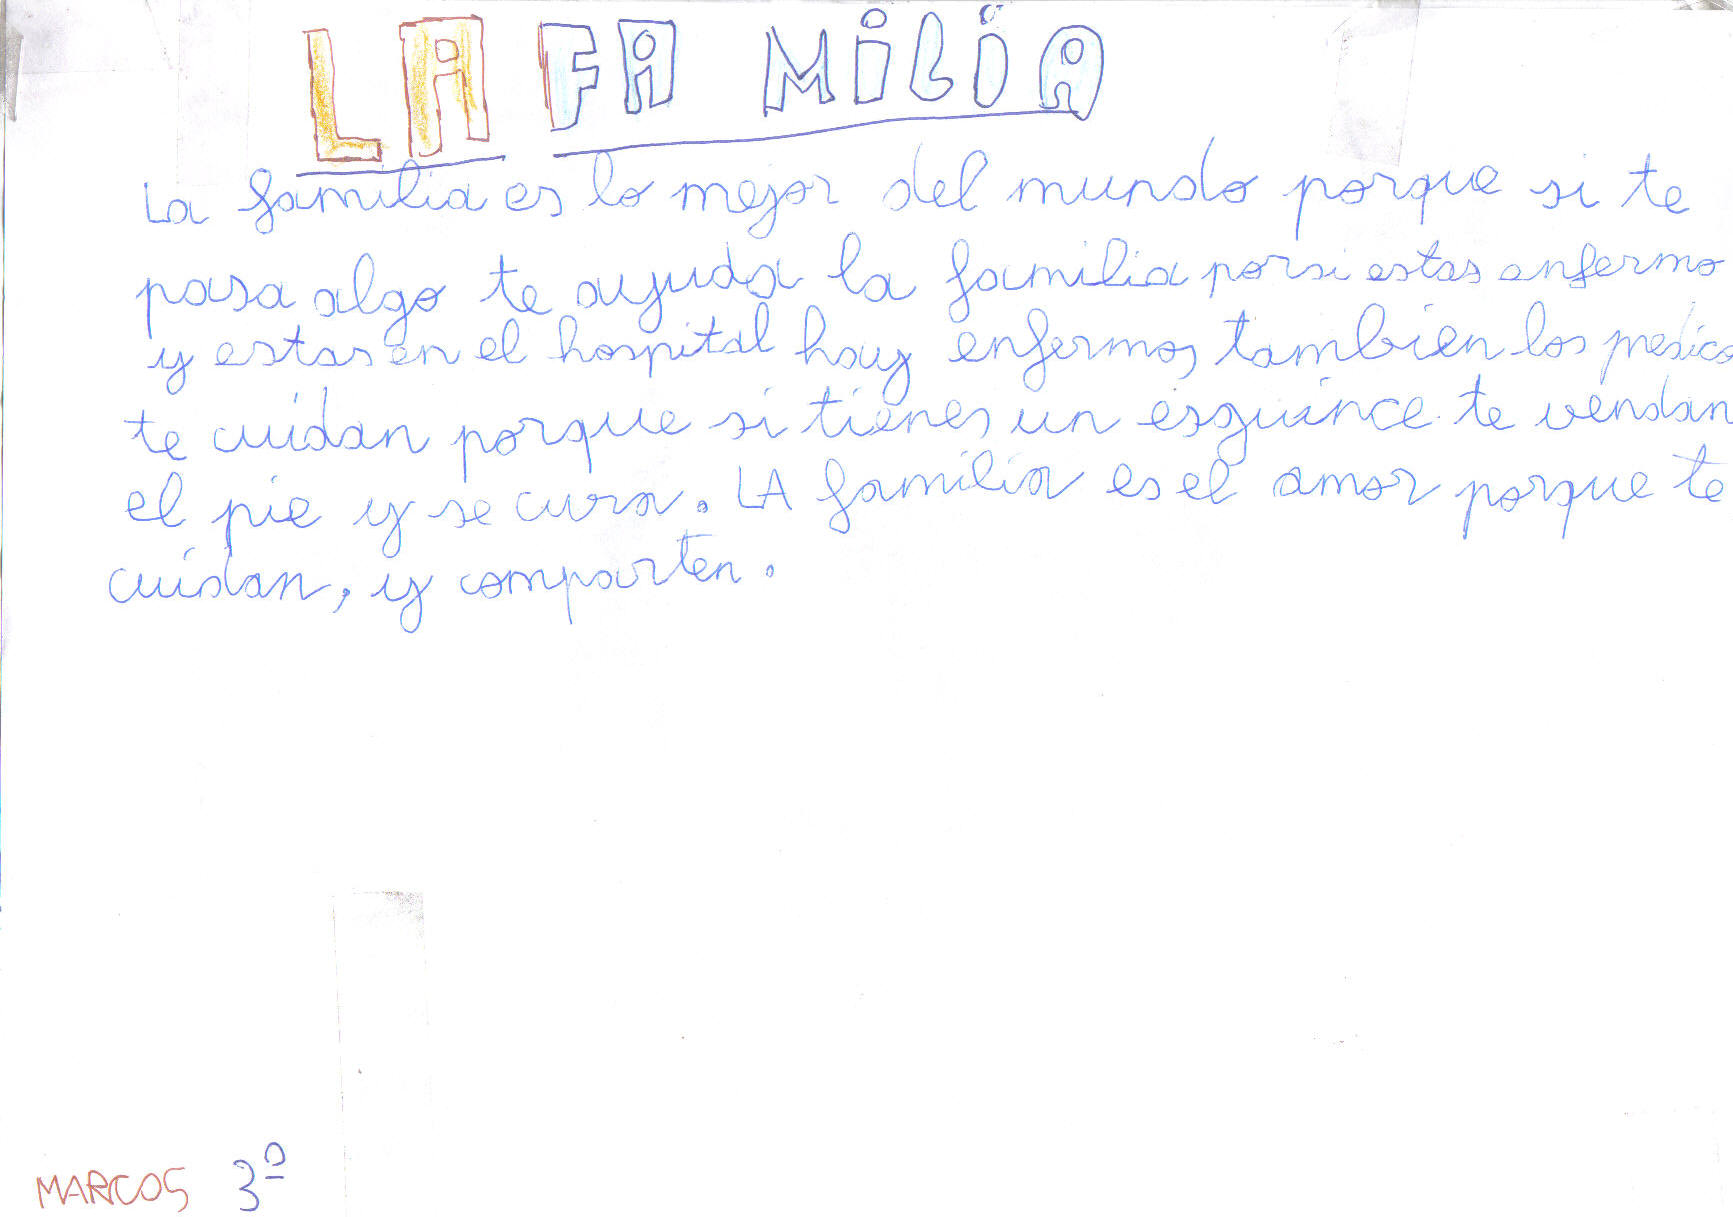 LA FAMILIA
La familia es lo mejor del mundo porque si te
pasa algo te ayuda la familia porsi estas enfermo
y estas en el hospital hay enfermos tambien los medico
te cuidan porque si tienes un esguince te vendan
el pie y se cura. LA familia es el amor porque te
cuidan, y comparten.
MARCOS 3º